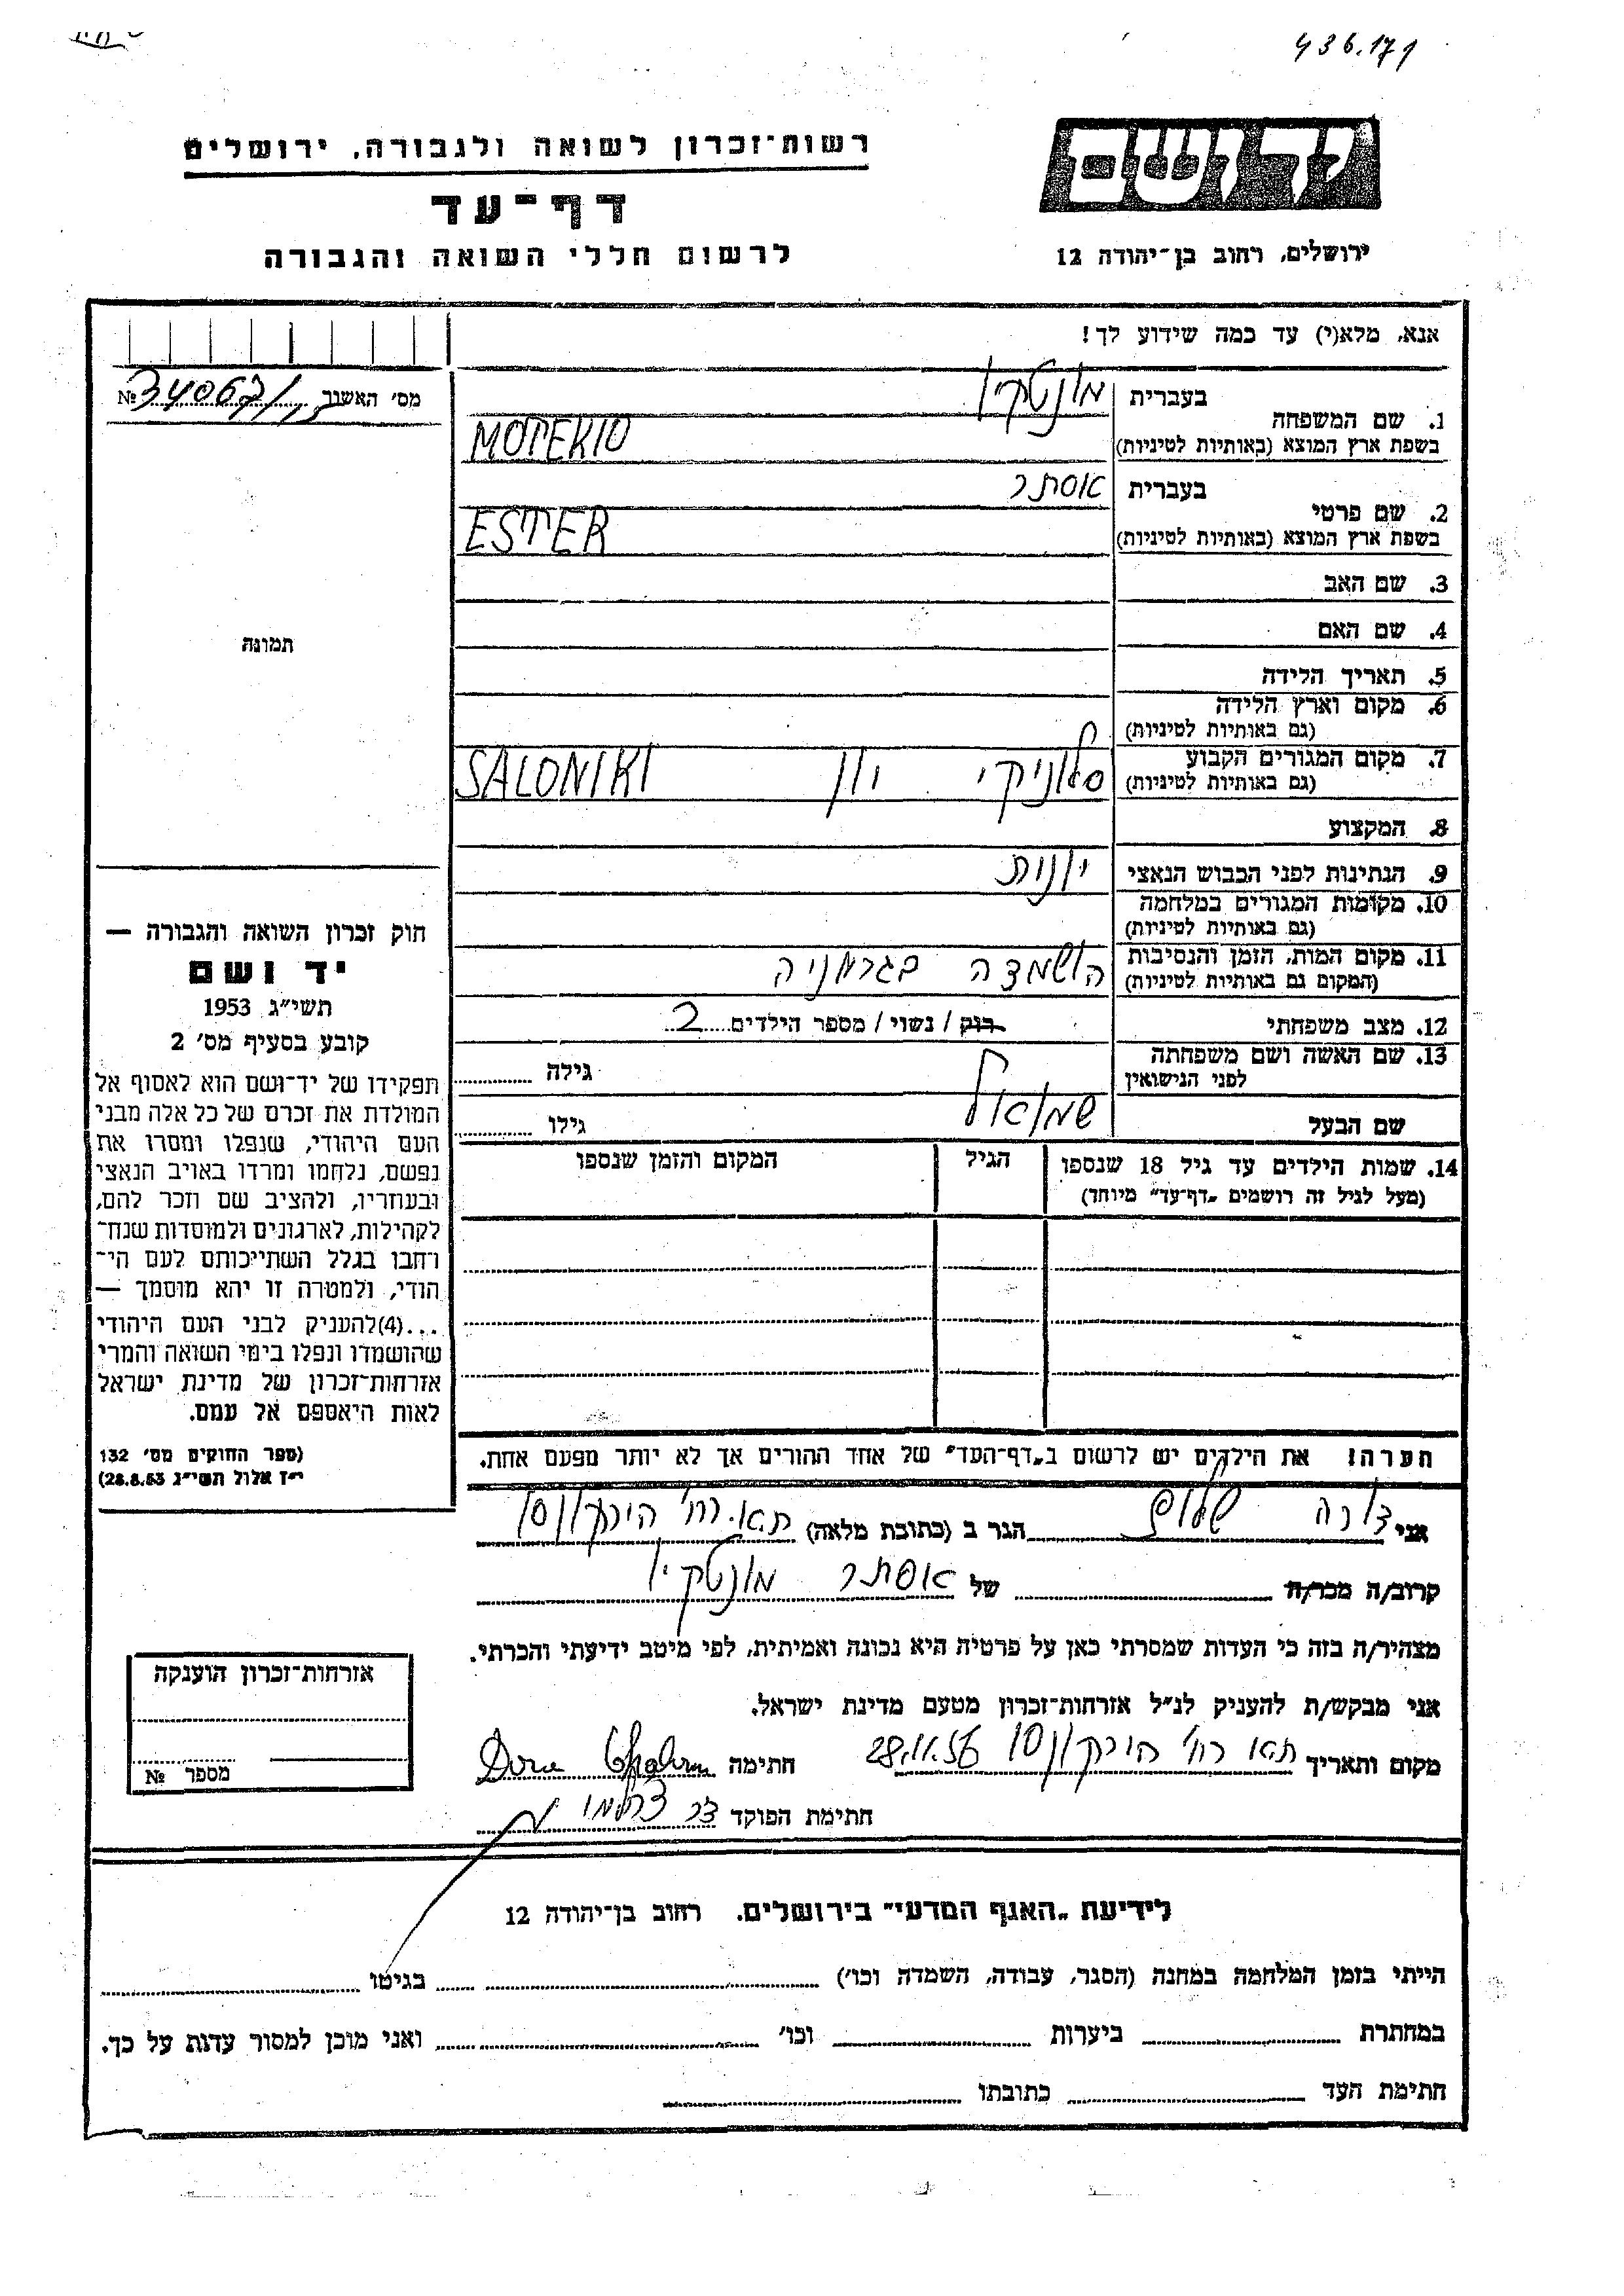 436.171
רשות־זכרון לשואה ולגבורה. ירושלים
דף־עד
לרשום חללי השואה והגבורה
יד ושם
ירושלים, רחוב בן־יהודה 12
אנא, מלא(י) עד כמה שידוע לך!
מס׳ האשור №
1. שם המשפחה
בעברית מונטקיו
בשפת ארץ המוצא (באותיות לטיניות) MOTEKIO
2. שם פרטי
בעברית אסתר
בשפת ארץ המוצא (באותיות לטיניות) ESTER
3. שם האב
4. שם האם
5. תאריך הלידה
6. מקום וארץ הלידה
(גם באותיות לטיניות)
7. מקום המגורים הקבוע סלוניקי יון SALONIKI
(גם באותיות לטיניות)
8. המקצוע
9. הנתינות לפני הכבוש הנאצי יונית
10. מקומות המגורים במלחמה
(גם באותיות לטיניות)
11. מקום המות, הזמן והנסיבות הושמדה בגרמניה
(המקום גם באותיות לטיניות)
12. מצב משפחתי רוק / נשוי / מספר הילדים 2
13. שם האשה ושם משפחתה גילה
לפני הנישואין
שם הבעל שמואל גילו
14. שמות הילדים עד גיל 18 שנספו הגיל המקום והזמן שנספו
(מעל לגיל זה רושמים „דף־עד״ מיוחד)
הערה! את הילדים יש לרשום ב„דף־העד״ של אחד ההורים אך לא יותר מפעם אחת.
תמונה
חוק זכרון השואה והגבורה —
יד ושם
תשי״ג 1953
קובע בסעיף מס׳ 2
תפקידו של יד־ושם הוא לאסוף אל
המולדת את זכרם של כל אלה מבני
העם היהודי, שנפלו ומסרו את
נפשם, נלחמו ומרדו באויב הנאצי
ובעוזריו, ולהציב שם וזכר להם,
לקהילות, לארגונים ולמוסדות שנח־
רחבו בגלל השתייכותם לעם הי־
הודי, ולמטרה זו יהא מוסמך —
...(4)להעניק לבני העם היהודי
שהושמדו ונפלו בימי השואה והמרי
אזרחות־זכרון של מדינת ישראל
לאות היאספם אל עמם.
(ספר החוקים מס׳ 132
י״ז אלול תשי״ג 28.8.53)
אני דורה שלום הגר ב (כתובת מלאה) ת.א. רח׳ הירקון 10
קרוב/ה מכר/ה של אסתר מונטקיו
מצהיר/ה בזה כי העדות שמסרתי כאן על פרטיה היא נכונה ואמיתית, לפי מיטב ידיעתי והכרתי.
אני מבקש/ת להעניק לנ״ל אזרחות־זכרון מטעם מדינת ישראל.
מקום ותאריך ת״א רח׳ הירקון 10 28.11.56 חתימה Dora
חתימת הפוקד
אזרחות־זכרון הוענקה
מספר №
לידיעת „האגף המדעי״ בירושלים. רחוב בן־יהודה 12
הייתי בזמן המלחמה במחנה (הסגר, עבודה, השמדה וכו׳) בגיטו
במחתרת ביערות וכו׳ ואני מוכן למסור עדות על כך.
חתימת העד כתובתו